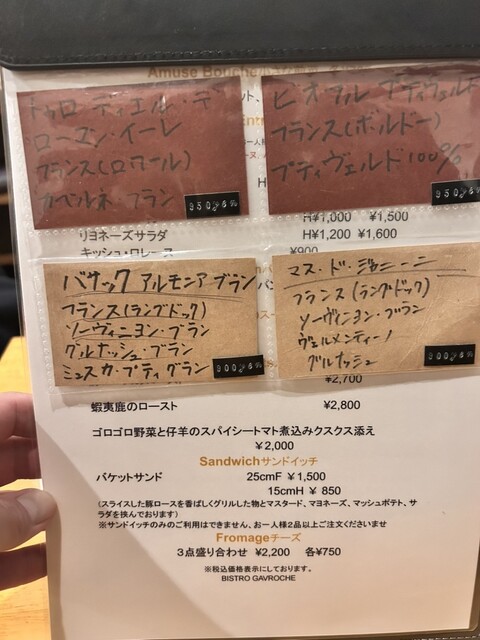 Amuse Bouche
ドゥロ・ティエル・デ
ローズン・イーレ
フランス(ロワール)
カベルネ・フラン
950
ビオフル プティヴェルド
フランス(ボルドー)
プティヴェルド100%
950
リヨネーズサラダ
H¥1,000 ¥1,500
H¥1,200 ¥1,600
キッシュ・ロレーヌ
¥900
バサック アルモニア ブラン
フランス(ラングドック)
ソーヴィニヨン・ブラン
グルナッシュ・ブラン
ミュスカ・プティグラン
900
マス・ド・ジャニーニ
フランス(ラングドック)
ソーヴィニヨン・ブラン
ヴェルメンティーノ
グルナッシュ
900
¥2,700
蝦夷鹿のロースト ¥2,800
ゴロゴロ野菜と仔羊のスパイシートマト煮込みクスクス添え
¥2,000
Sandwichサンドイッチ
バケットサンド 25cmF ¥1,500
15cmH ¥ 850
(スライスした豚ロースを香ばしくグリルした物とマスタード、マヨネーズ、マッシュポテト、サ
ラダを挟んでおります)
※サンドイッチのみのご利用はできません、お一人様2品以上ご注文くださいませ
Fromageチーズ
3点盛り合わせ ¥2,200 各¥750
※税込価格表示にしております。
BISTRO GAVROCHE